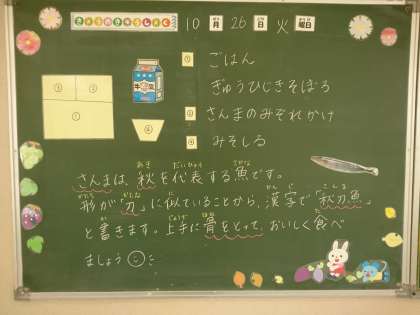 きょうのきゅうしょく
10月26日火曜日
① ごはん
ぎゅうひじきそぼろ
② さんまのみぞれかけ
③ みそしる
牛乳
さんまは、秋を代表する魚です。
形が「刀」に似ていることから、漢字で「秋刀魚」
と書きます。上手に骨をとって、おいしく食べ
ましょう